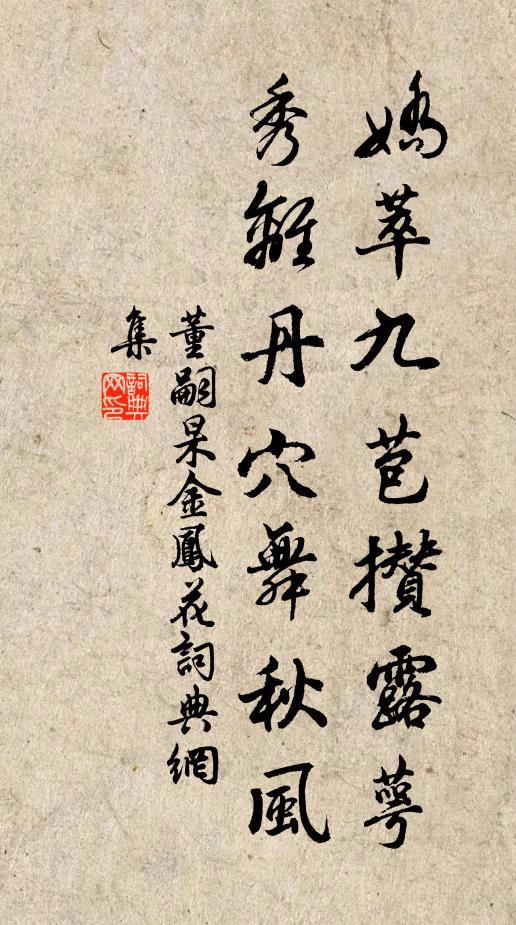 嬌萃九苞攢露萼
秀離丹穴舞秋風
董嗣杲金鳳花詞典網
集
詞典
网印